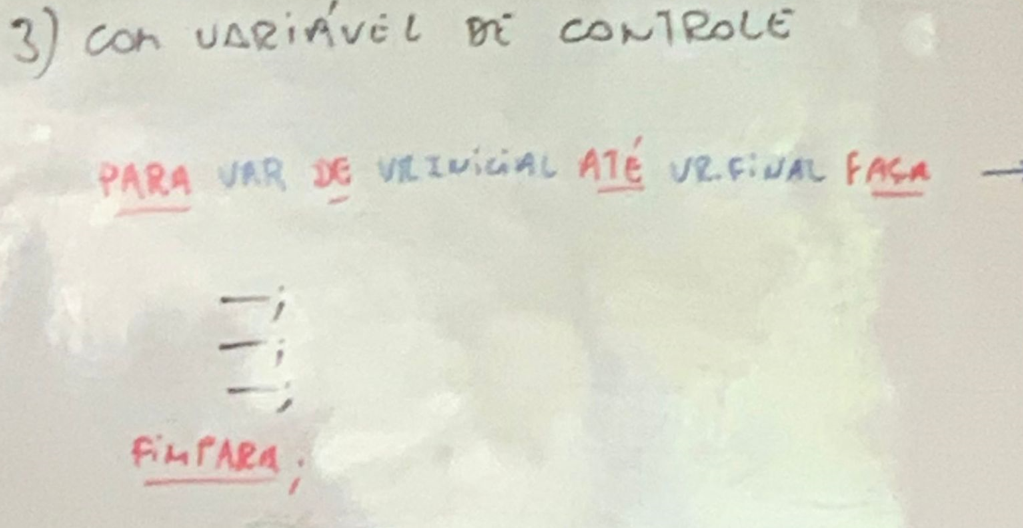 3) COM VARIÁVEL DE CONTROLE
PARA VAR DE VR INICIAL ATÉ VR.FINAL FAÇA →
—;
—;
—;
FIMPARA;